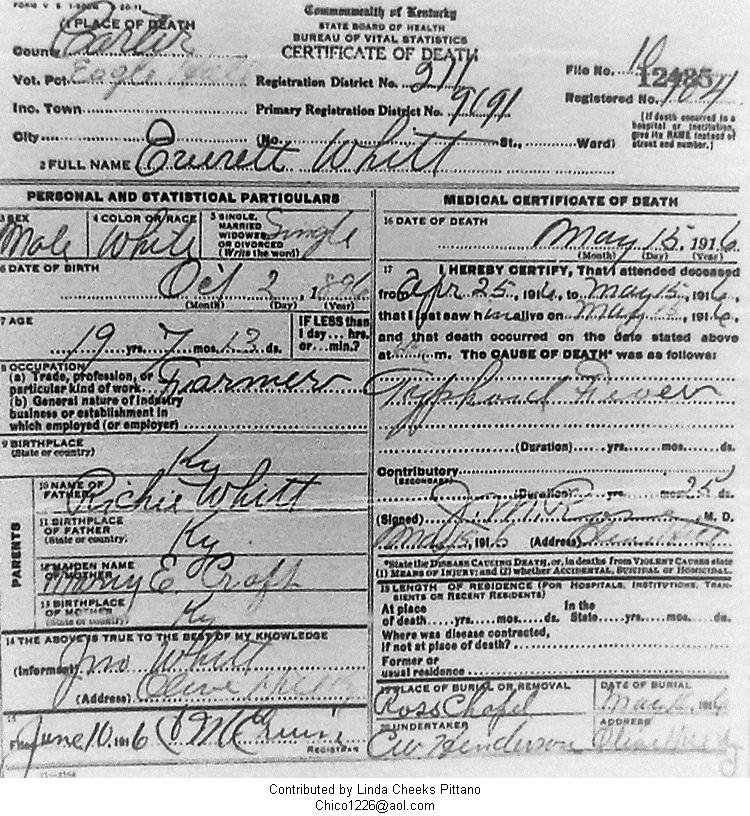 Commonwealth of Kentucky
STATE BOARD OF HEALTH
BUREAU OF VITAL STATISTICS
CERTIFICATE OF DEATH
1 PLACE OF DEATH
County Carter
Vot. Pct. Eagle
Inc. Town
City
Registration District No. 211
Primary Registration District No. 9191
(No. St., Ward)
File No. 12485
Registered No. 104
[If death occurred in a
hospital or institution,
give its NAME instead of
street and number.]
2 FULL NAME Everett Whitt
PERSONAL AND STATISTICAL PARTICULARS
3 SEX
Male
4 COLOR OR RACE
White
5 SINGLE,
MARRIED
WIDOWED
OR DIVORCED
(Write the word)
Single
6 DATE OF BIRTH
Oct 2, 1896
(Month) (Day) (Year)
7 AGE
19 yrs. 7 mos. 13 ds.
IF LESS than
1 day... hrs.
or... min.?
8 OCCUPATION
(a) Trade, profession, or
particular kind of work Farmer
(b) General nature of industry
business or establishment in
which employed (or employer)
9 BIRTHPLACE
(State or country)
Ky
PARENTS
10 NAME OF
FATHER
Richie Whitt
11 BIRTHPLACE
OF FATHER
(State or country)
Ky
12 MAIDEN NAME
OF MOTHER
Mary E. Croft
13 BIRTHPLACE
OF MOTHER
(State or country)
Ky
14 THE ABOVE IS TRUE TO THE BEST OF MY KNOWLEDGE
(Informant) Jno Whitt
(Address) Olive Hill Ky
15
Filed June 10, 1916
REGISTRAR
MEDICAL CERTIFICATE OF DEATH
16 DATE OF DEATH
May 15, 1916
(Month) (Day) (Year)
17 I HEREBY CERTIFY, That I attended deceased
from Apr 25, 1916, to May 15, 1916,
that I last saw him alive on May 15, 1916,
and that death occurred on the date stated above
at m. The CAUSE OF DEATH* was as follows:
Typhoid Fever
(Duration) yrs. mos. ds.
Contributory
(SECONDARY)
(Duration) yrs. mos. 25 ds.
(Signed) J. M. M. D.
May 1916 (Address) Olive Hill
*State the DISEASE CAUSING DEATH, or, in deaths from VIOLENT CAUSES state
(1) MEANS OF INJURY; and (2) whether ACCIDENTAL, SUICIDAL or HOMICIDAL.
18 LENGTH OF RESIDENCE (FOR HOSPITALS, INSTITUTIONS, TRAN-
SIENTS OR RECENT RESIDENTS)
At place
of death yrs. mos. ds.
In the
State yrs. mos. ds.
Where was disease contracted,
if not at place of death?
Former or
usual residence
19 PLACE OF BURIAL OR REMOVAL
Ross Chapel
DATE OF BURIAL
May 1916
20 UNDERTAKER
CW Henderson
ADDRESS
Olive Hill Ky
Contributed by Linda Cheeks Pittano
Chico1226@aol.com